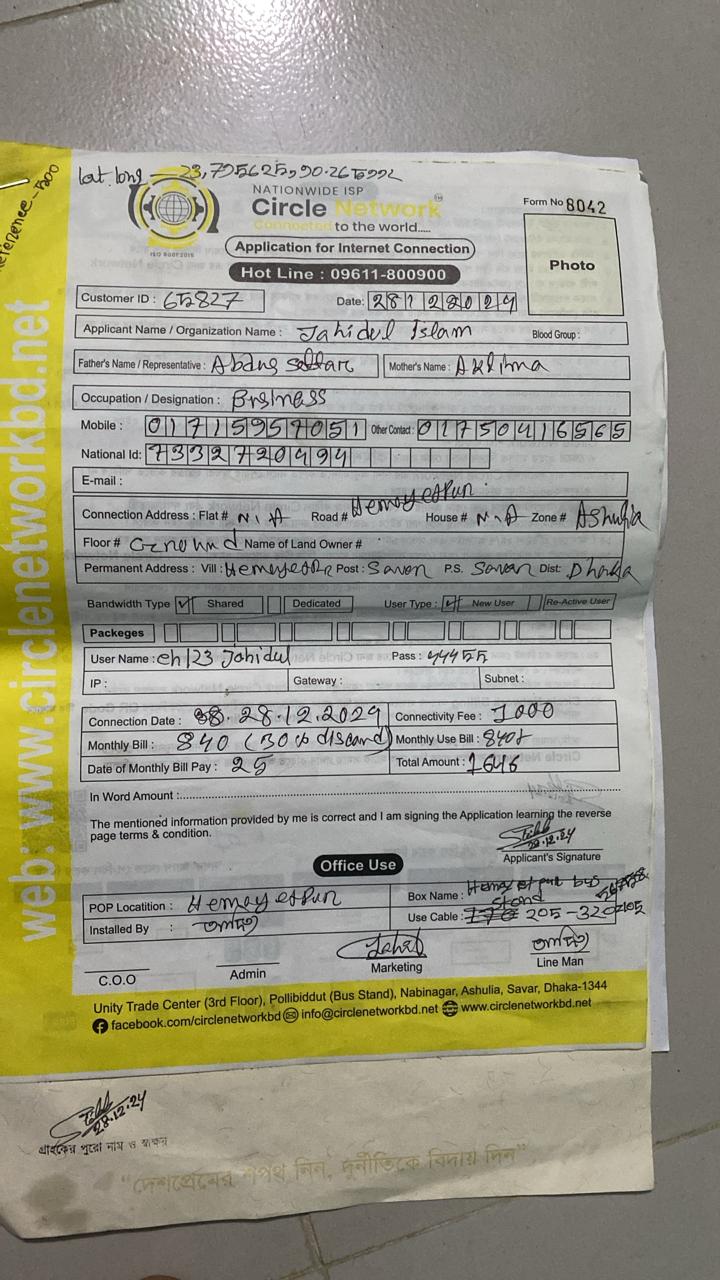 lat. long - 23,795625,90.265992
Reference - 500
NATIONWIDE ISP
Circle Network™
Connected to the world.....
ISO 9001:2015
Form No 8042
Application for Internet Connection
Photo
Hot Line : 09611-800900
Customer ID : 65827 Date: 28122024
Applicant Name / Organization Name : Jahidul Islam Blood Group :
Father's Name / Representative : Abdus sattar Mother's Name : Aklima
Occupation / Designation : Business
Mobile : 01715957051 Other Contact : 01750416565
National Id: 7332720494
E-mail :
Connection Address : Flat # N.A Road # Hemayetpur. House # N.A Zone # Ashulia
Floor # Ground Name of Land Owner #
Permanent Address : Vill : Post : Savar P.S. Savar Dist: Dhaka
Bandwidth Type ✓ Shared Dedicated User Type : ✓ New User Re-Active User
Packeges
User Name : ch123 Jahidul Pass : 44455
IP : Gateway : Subnet :
Connection Date : 28.12.2024 Connectivity Fee : 1000
Monthly Bill : 840 (30% Monthly Use Bill :
Date of Monthly Bill Pay : 25 Total Amount :
In Word Amount :
The mentioned information provided by me is correct and I am signing the Application learning the reverse
page terms & condition.
28.12.24
Applicant's Signature
Office Use
POP Locatition : Hemayetpur Box Name : Hemayetpur bus stand
Installed By : Use Cable : 205-320
C.O.O Admin Marketing Line Man
Unity Trade Center (3rd Floor), Pollibiddut (Bus Stand), Nabinagar, Ashulia, Savar, Dhaka-1344
facebook.com/circlenetworkbd info@circlenetworkbd.net www.circlenetworkbd.net
web: www.circlenetworkbd.net
28.12.24
গ্রাহকের পুরো নাম ও স্বাক্ষর
"দেশপ্রেমের শপথ নিন, দুর্নীতিকে বিদায় দিন"